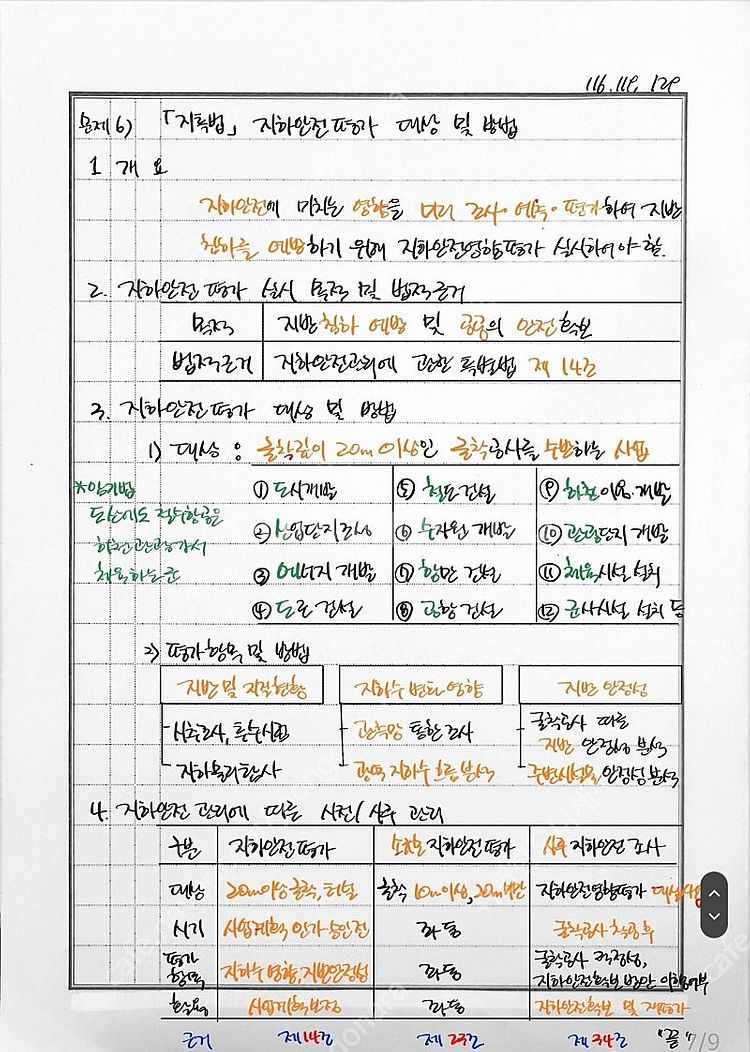 116. 119, 129
문제 6) 「지특법」 지하안전평가 대상 및 방법
1. 개요
지하안전에 미치는 영향을 미리 조사·예측·평가하여 지반
침하를 예방하기 위해 지하안전영향평가 실시하여야 함.
2. 지하안전평가 실시 목적 및 법적근거
목적 지반침하 예방 및 공공의 안전확보
법적근거 지하안전관리에 관한 특별법 제 14조
3. 지하안전평가 대상 및 방법
1) 대상 : 굴착깊이 20m 이상인 굴착공사를 수반하는 사업
*암기법
도산에도 철수항공은
하천관광가서
체육하는군
① 도시개발 ⑤ 철도건설 ⑨ 하천이용. 개발
② 산업단지조성 ⑥ 수자원 개발 ⑩ 관광단지 개발
③ 에너지 개발 ⑦ 항만 건설 ⑪ 체육시설 설치
④ 도로 건설 ⑧ 공항 건설 ⑫ 군사시설 설치 등
2) 평가항목 및 방법
지반 및 지질현황 지하수 변화 영향 지반 안정성
시추조사, 투수시험 관측망 통한 조사 굴착공사 따른
지반 안정성 분석
지하물리탐사 광역 지하수 흐름 분석 주변시설물 안정성 분석
4. 지하안전 관리에 따른 사전/사후 관리
구분 지하안전평가 소규모 지하안전평가 사후 지하안전 조사
대상 20m이상굴착, 터널 굴착 10m이상, 20m미만 지하안전영향평가 대상사업
시기 사업계획 인가·승인전 좌동 굴착공사 착공후
평가항목 지하수영향, 지반안정성 좌동 굴착공사 적정성,
지하안전확보 방안 이행여부
활용 사업계획보정 좌동 지하안전확보 및 재평가
근거 제14조 제23조 제34조 "끝"
7/9